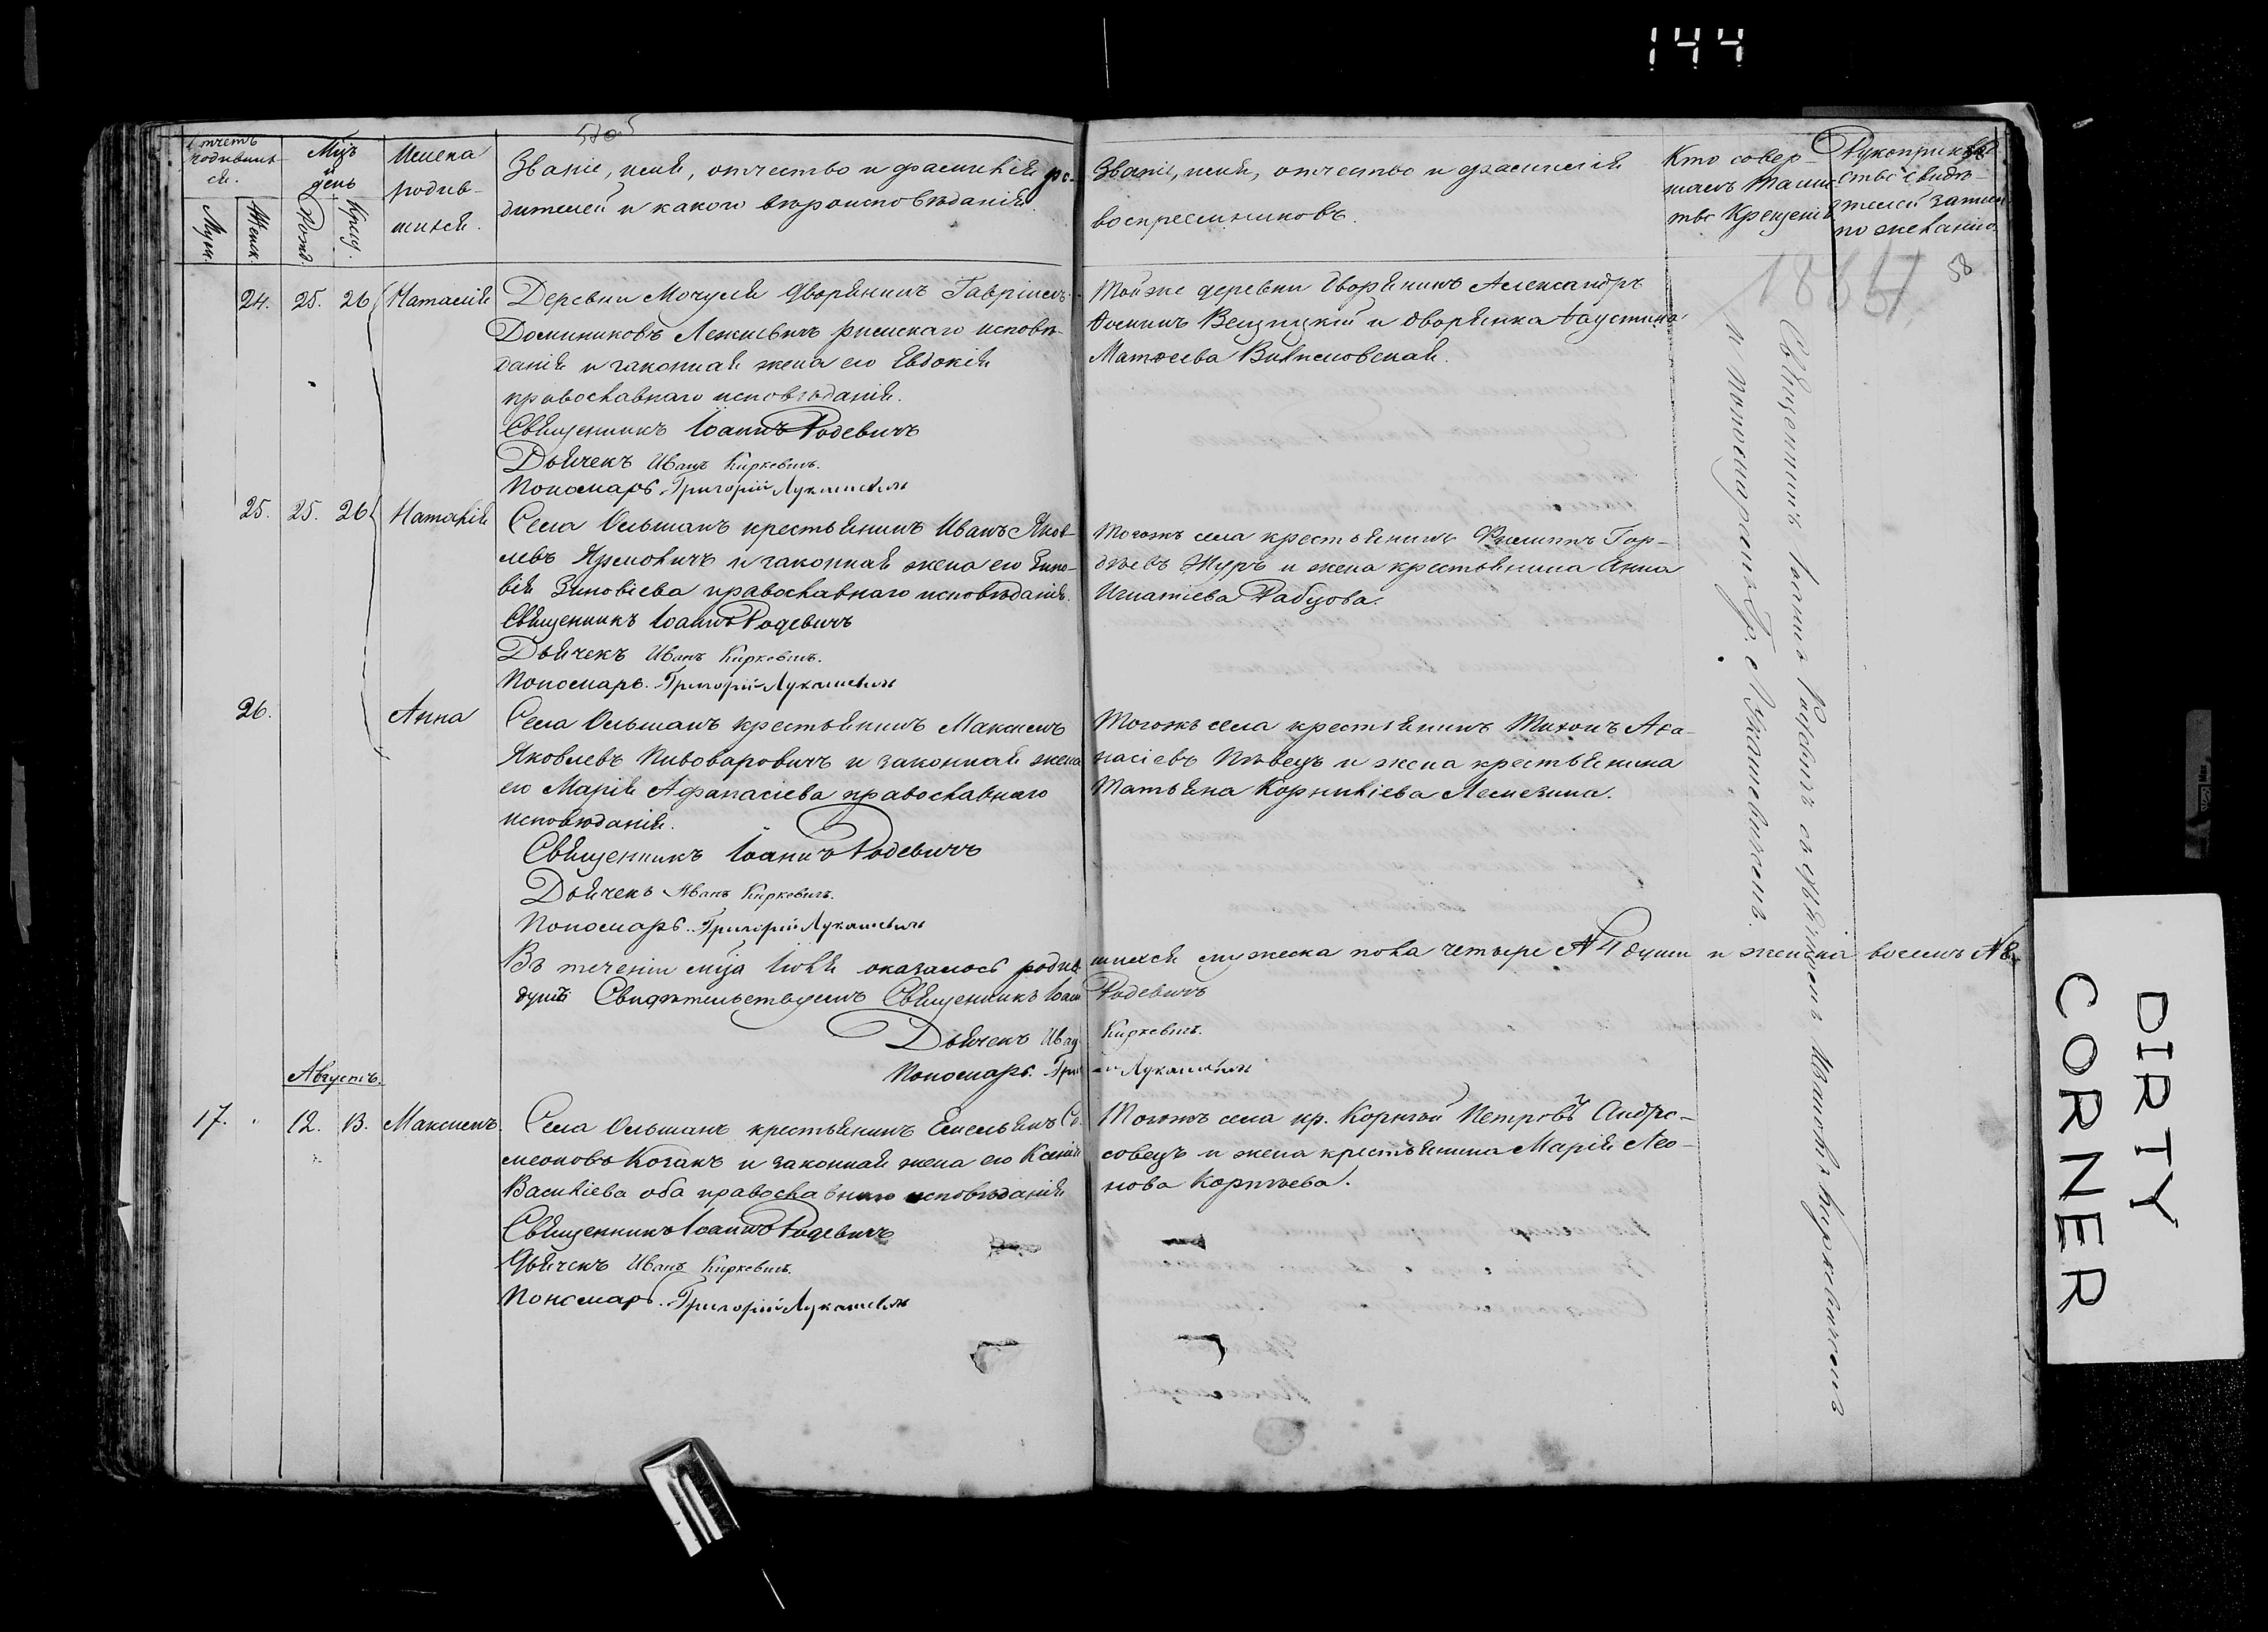 144
Счетъ родивших-ся.
Муж.
Женск.
Мцъ и день
Рожд.
Крещ.
Имена родив-шихся.
Званіе, имя, отчество и фамилія ро-
дителей и какого вѣроисповѣданія.
Званіе, имя, отчество и фамилія
воспреемниковъ.
Кто совер-
шалъ Таин-
тво Крещенія
Рукоприклад
ство свидѣ-
телей записи
по желанію.
58
24. 25. 26 Наталія
Деревни Мочуля дворянинъ Гавріилъ
Доминиковъ Лежневичъ римскаго исповѣ-
данія и законная жена его Евдокія
православнаго исповѣданія.
Священникъ Іоаннъ Родевичъ
Дьячекъ Иванъ Киркевичъ.
Пономарь Григорій Лукашевичъ
Тойже деревни дворянинъ Александръ
и дворянка Фаустина
Матѳеева
25. 25. 26 Наталія
Села Ольшанъ крестьянинъ Иванъ Яков-
левъ Яремовичъ и законная жена его Зино-
вія Зиновіева православнаго исповѣданія.
Священникъ Іоаннъ Родевичъ
Дьячекъ Иванъ Киркевичъ.
Пономарь. Григорій Лукашевичъ
Тогожъ села крестьянинъ Филиппъ Гор-
дѣевъ Журъ и жена крестьянина Анна
Игнатіева Рабцова.
26. Анна
Села Ольшанъ крестьянинъ Максимъ
Яковлевъ Пивоваровичъ и законная жена
его Марія Афанасіева православнаго
исповѣданія.
Священникъ Іоаннъ Родевичъ
Дьячекъ Иванъ Киркевичъ.
Пономарь. Григорій Лукашевичъ
Тогожъ села крестьянинъ Тихонъ Аѳа-
насіевъ Пѣвецъ и жена крестьянина
Татьяна Корниліева
Въ теченіи мца Іюля оказалось родив шихся мужеска пола четыре № 4 души и женска восемь № 8.
душъ Свидѣтельствуемъ Священникъ Іоан Родевичъ
Дьячекъ Иван Киркевичъ.
Пономарь. Гри й Лукашевичъ
Августъ.
17. " 12. 13. Максимъ.
Села Ольшанъ крестьянинъ Емельянъ Си-
меоновъ Козакъ и законная жена его Ксенія
Василіева оба православнаго исповѣданія
Священникъ Іоаннъ Родевичъ
Дьячекъ Иванъ Киркевичъ.
Пономарь. Григорій Лукашевичъ
Тогожъ села кр. Корнѣй Петровъ Андро-
совецъ и жена крестьянина Марія Лео-
нова Корнѣева.
Священникъ Іоаннъ Родевичъ съ дьячкомъ Иваномъ Киркевичемъ
и пономаремъ Гр. Лукашевичемъ.
DIRTY
CORNER